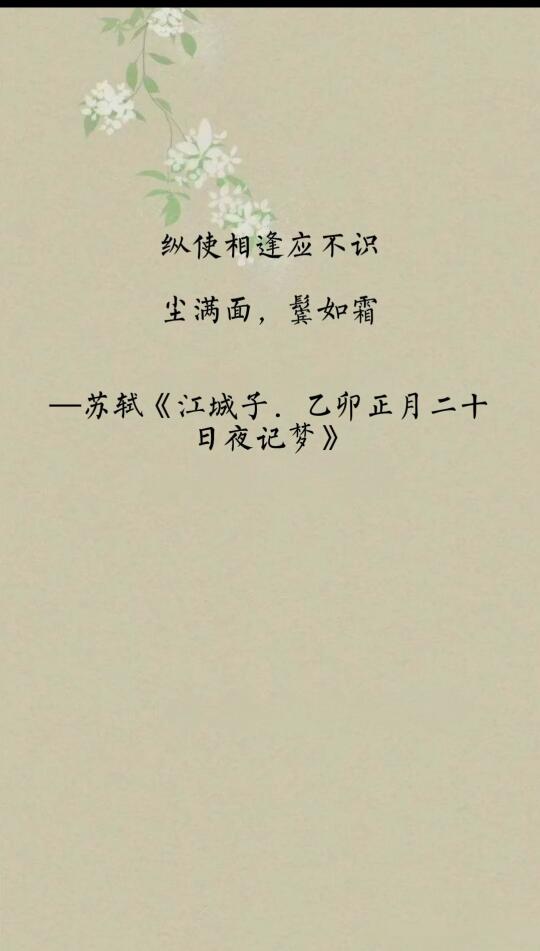 纵使相逢应不识
尘满面，鬓如霜
—苏轼《江城子．乙卯正月二十
日夜记梦》